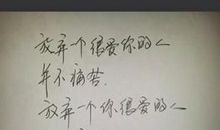 放弃一个很爱你的人
并不痛苦
放弃一个你很爱的人